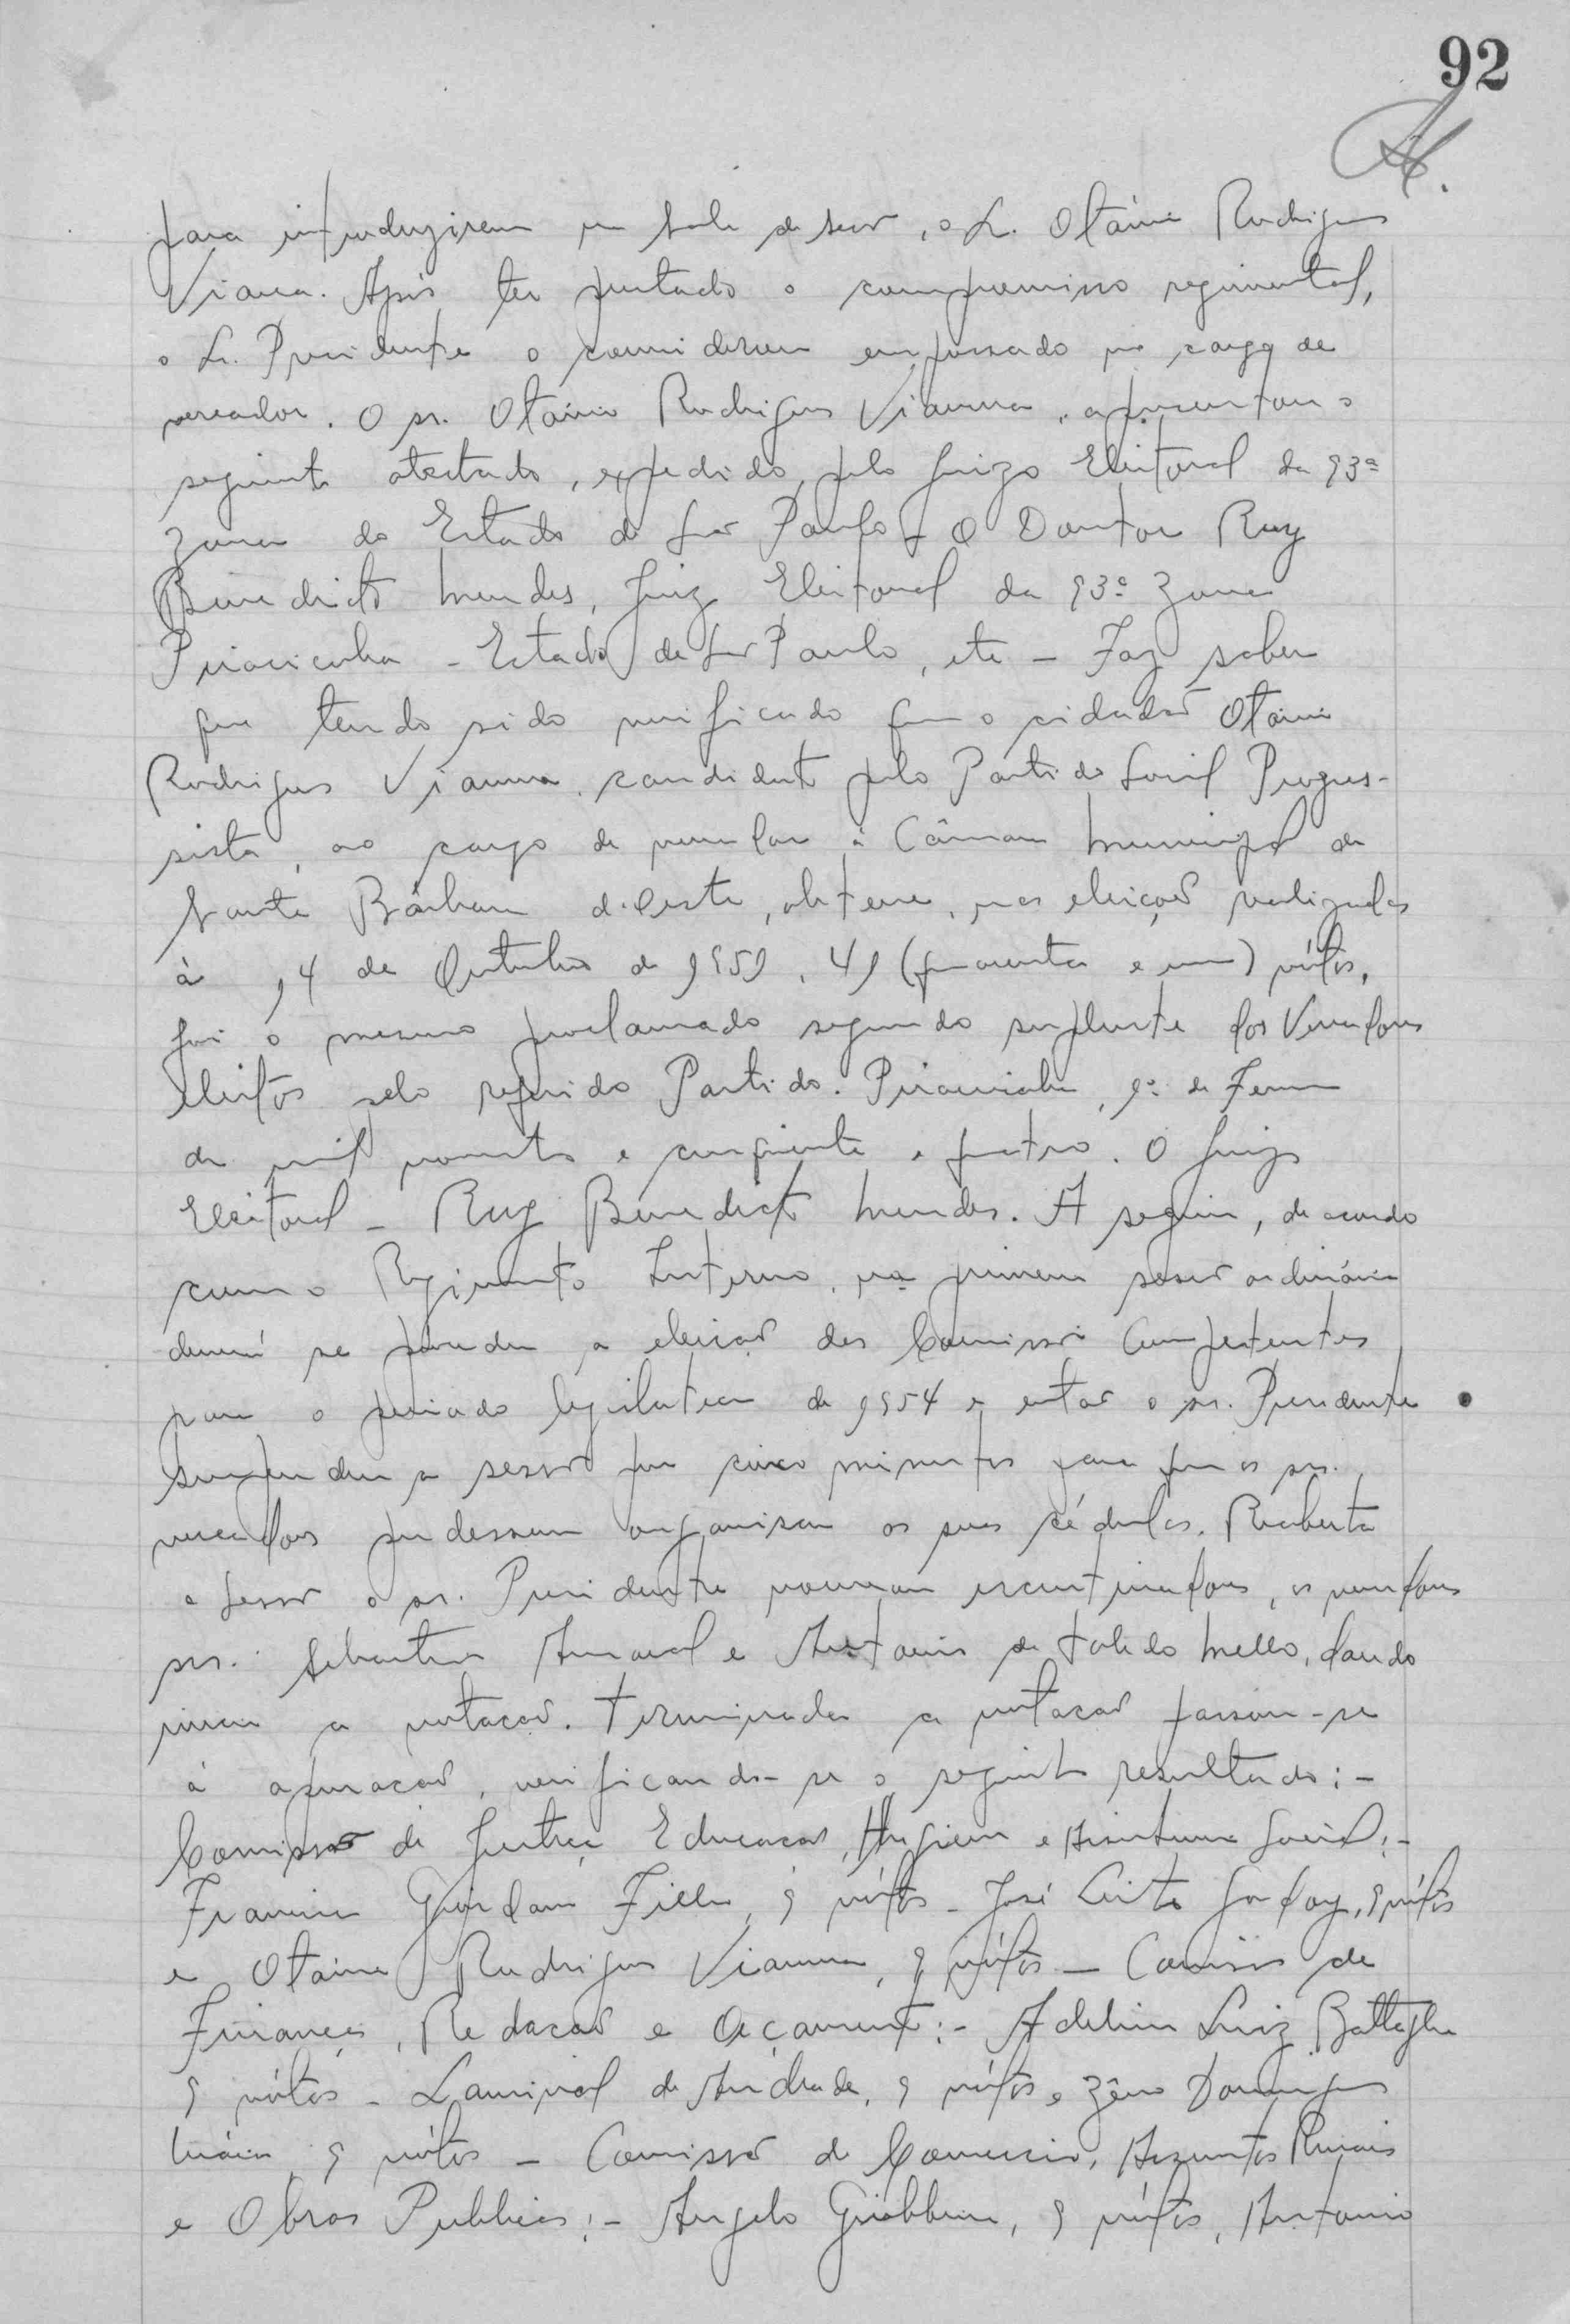 92
para introduzirem na sala da sessão, o Sr. Otávio Rodrigues
Viana. Após ter prestado o compromisso regimental,
o Sr. Presidente o considerou empossado no cargo de
vereador. O sr. Otávio Rodrigues Vianna, apresentou o
seguinte atestado, expedido pelo Juizo Eleitoral da 93ª
zona do Estado de São Paulo - O Doutor Ruy
Benedicto Mendes, Juiz Eleitoral da 93ª Zona
Piracicaba - Estado de São Paulo, etc - Faz saber
que tendo sido verificado que o cidadão Otávio
Rodrigues Vianna, candidato pelo Partido Social Progres-
sista, ao cargo de vereador à Câmara Municipal de
Santa Bárbara d'Oeste, obteve, nas eleições realizadas
à 14 de Outubro de 1951, 41 (quarenta e um) vótos,
foi o mesmo proclamado segundo suplente dos Vereadores
eleitos pelo referido Partido. Piracicaba, 1º de
de mil novecentos e cincoenta e quatro. O Juizo
Eleitoral - Ruy Benedicto Mendes. A seguir, de acordo
com o Regimento Interno, na primeira sessão ordinária
deverá se proceder a eleição das Comissões Competentes
para o periodo legislativo de 1954 e então o sr. Presidente
suspendeu a sessão por cinco minutos para que os srs.
vereadores pudessem organisar as suas cédulas. Reaberta
a sessão o sr. Presidente nomeou escrutinadores, os vereadores
srs. Sebastião Amaral e Antonio de Toledo Mello, dando
inicio a votação. Terminada a votação passou-se
à apuração, verificando-se o seguinte resultado:-
Comissão de Justiça Educação, Higiene e Assistencia Social:-
Francisco Filho, 9 vótos - José 9 vótos
e Otávio Rodrigues Vianna, 9 vótos - Comissão de
Finanças, Redação e Orçamento:- Adelino Luiz Battaglia
9 vótos - Laurival de Andrade, 9 vótos e Zêno Domingues
Maia, 9 vótos - Comissão de Comercio, Assuntos Rurais
e Obras Publicas:- Angelo 9 vótos, Antonio